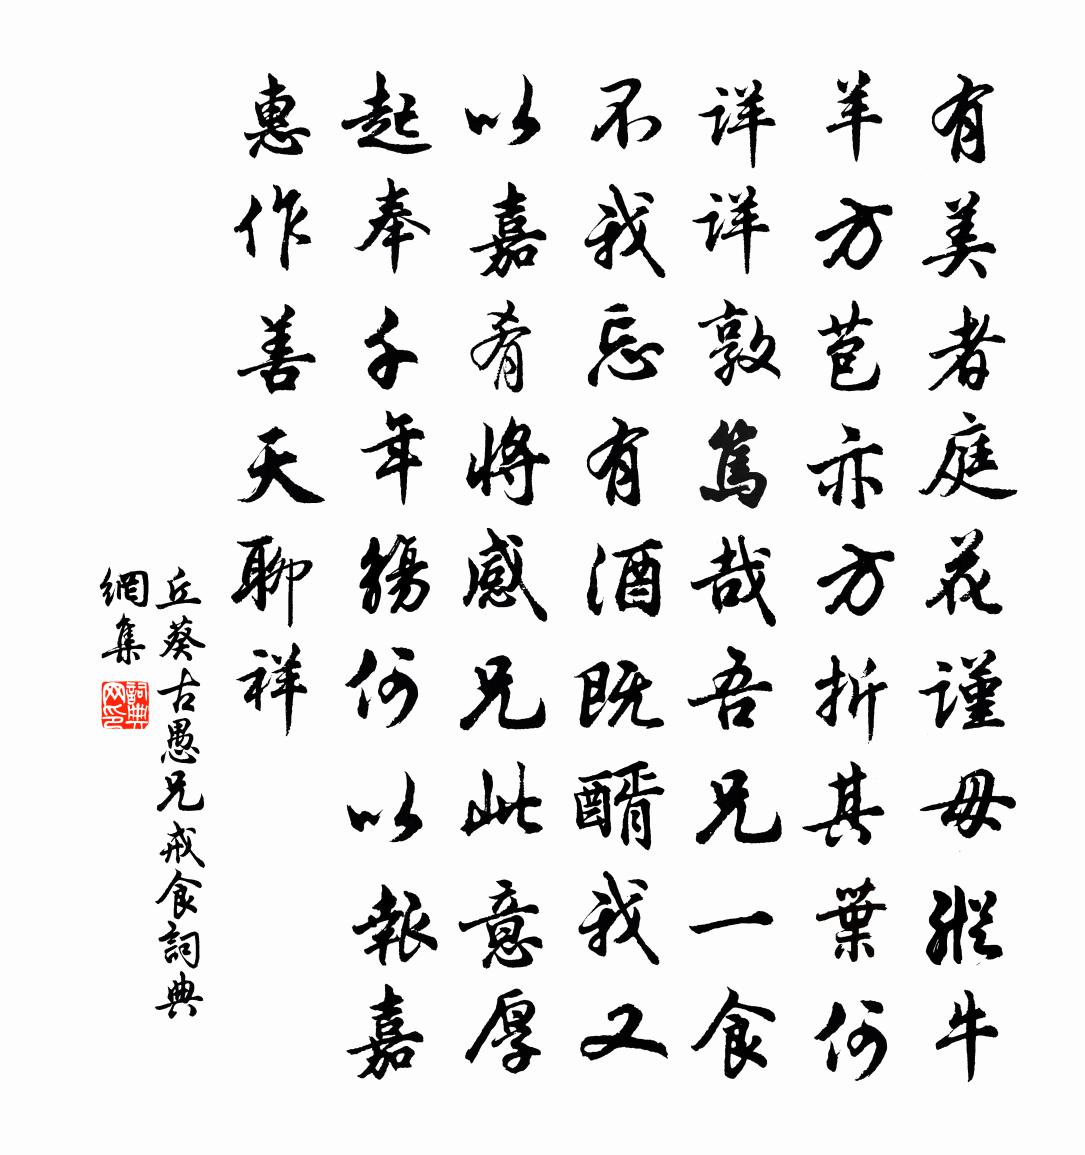 有美者庭花謹毋縱牛
羊方苞亦方折其葉何
詳詳敦篤哉吾兄一食
不我忘有酒既醑我又
以嘉肴將感兄此意厚
起奉千年觴何以報嘉
惠作善天聊祥
丘葵古愚兄戒食詞典
網集
詞典
网印